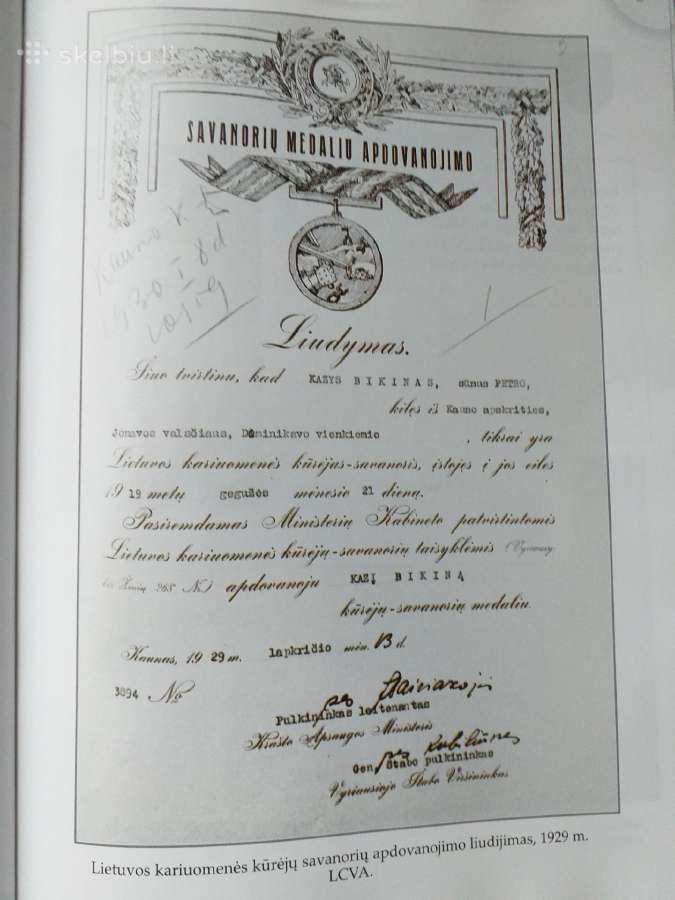 skelbiu.lt
SAVANORIŲ MEDALIU APDOVANOJIMO
Kauno K
1930 I 8 d
1
Liudymas.
Šiuo tvirtinu, kad KAZYS BIKINAS, sūnus PETRO,
kilęs iš Kauno apskrities,
Jonavos valsčiaus, Dominikavo vienkiemio, tikrai yra
Lietuvos kariuomenės kūrėjas-savanoris, įstojęs į jos eiles
19 19 metų gegužės mėnesio 21 dieną.
Pasiremdamas Ministerių Kabineto patvirtintomis
Lietuvos kariuomenės kūrėjų-savanorių taisyklėmis (Vyriausy
bės Žinių 268 №) apdovanoju KAZĮ BIKINĄ
kūrėjų-savanorių medaliu.
Kaunas, 19 29 m. lapkričio mėn. 13 d.
3894 №
Pulkininkas leitenantas
Krašto Apsaugos Ministeris
Gen. štabo pulkininkas
Vyriausiojo Štabo Viršininkas
Lietuvos kariuomenės kūrėjų savanorių apdovanojimo liudijimas, 1929 m.
LCVA.